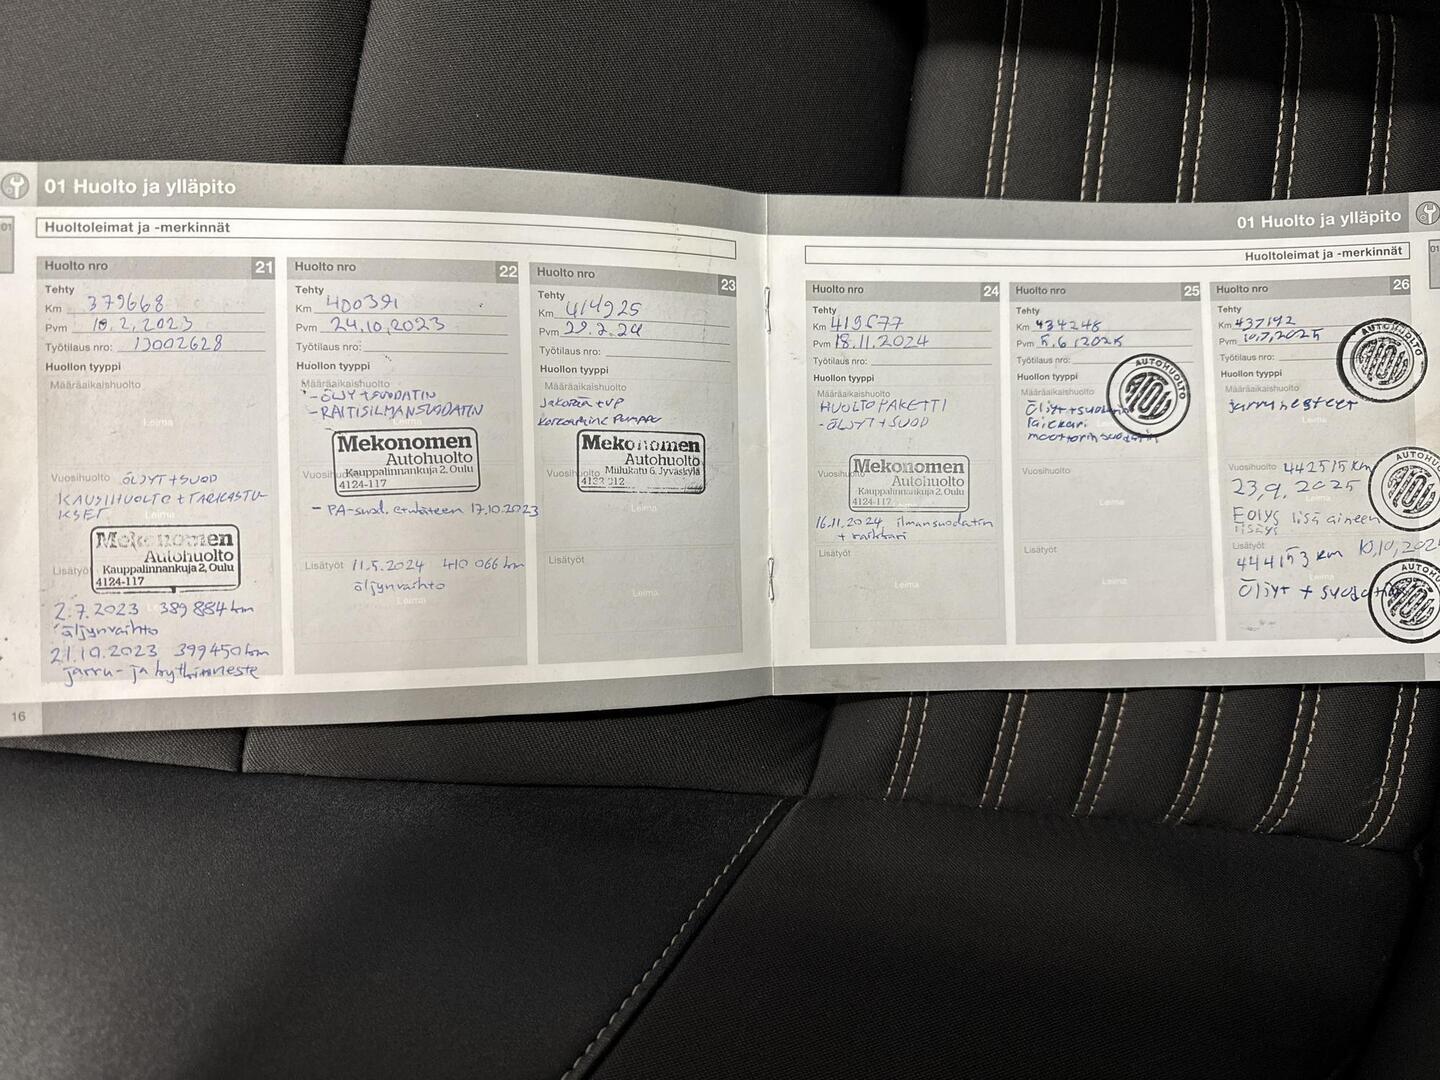 01 Huolto ja ylläpito
01
Huoltoleimat ja -merkinnät
Huolto nro 21
Tehty
Km 379668
Pvm 10.2.2023
Työtilaus nro: 13002628
Huollon tyyppi
Määräaikaishuolto
Leima
Vuosihuolto ÖLJYT+SUOD
KAUSIHUOLTO + TARKASTU-
KSET
Leima
Mekonomen
Autohuolto
Kauppalinnankuja 2, Oulu
4124-117
Lisätyöt
2.7.2023 389884 km
öljynvaihto
21.10.2023 399450 km
jarru- ja kytkinneste
16
Huolto nro 22
Tehty
Km 400391
Pvm 24.10.2023
Työtilaus nro:
Huollon tyyppi
Määräaikaishuolto
-ÖLJY+SUODATIN
-RAITISILMANSUODATIN
Leima
Mekonomen
Autohuolto
Vuosihuolto
Kauppalinnankuja 2, Oulu
4124-117
- PA-suod. etukäteen 17.10.2023
Lisätyöt 11.5.2024 410 066 km
öljynvaihto
Leima
Huolto nro 23
Tehty
Km 414925
Pvm 29.2.24
Työtilaus nro:
Huollon tyyppi
Määräaikaishuolto
Mekonomen
Autohuolto
Vuosihuolto
Miilukatu 6, Jyväskylä
Leima
Lisätyöt
Leima
01 Huolto ja ylläpito
01
Huoltoleimat ja -merkinnät
Huolto nro 24
Tehty
Km
Pvm 18.11.2024
Työtilaus nro:
Huollon tyyppi
Määräaikaishuolto
HUOLTOPAKETTI
-ÖLJYT+SUOD
Mekonomen
Autohuolto
Vuosihuolto
Kauppalinnankuja 2, Oulu
4124-117
16.11.2024 ilmansuodatin
Lisätyöt
Leima
Huolto nro 25
Tehty
Km 434248
Pvm 5.6.2025
Työtilaus nro:
Huollon tyyppi
Määräaikaishuolto
AUTOHUOLTO
Öljyt+suodatin
moottorinsuodatin
Vuosihuolto
Leima
Lisätyöt
Leima
Huolto nro 26
Tehty
Km 437192
Pvm 10.7.2025
Työtilaus nro:
Huollon tyyppi
AUTOHUOLTO
Määräaikaishuolto
jarrunesteet
Vuosihuolto 442515 km
23.9.2025
AUTOHUOLTO
Eolys lisäaineen
lisäys
Lisätyöt
444153 km
AUTOHUOLTO
Öljyt + suodatin